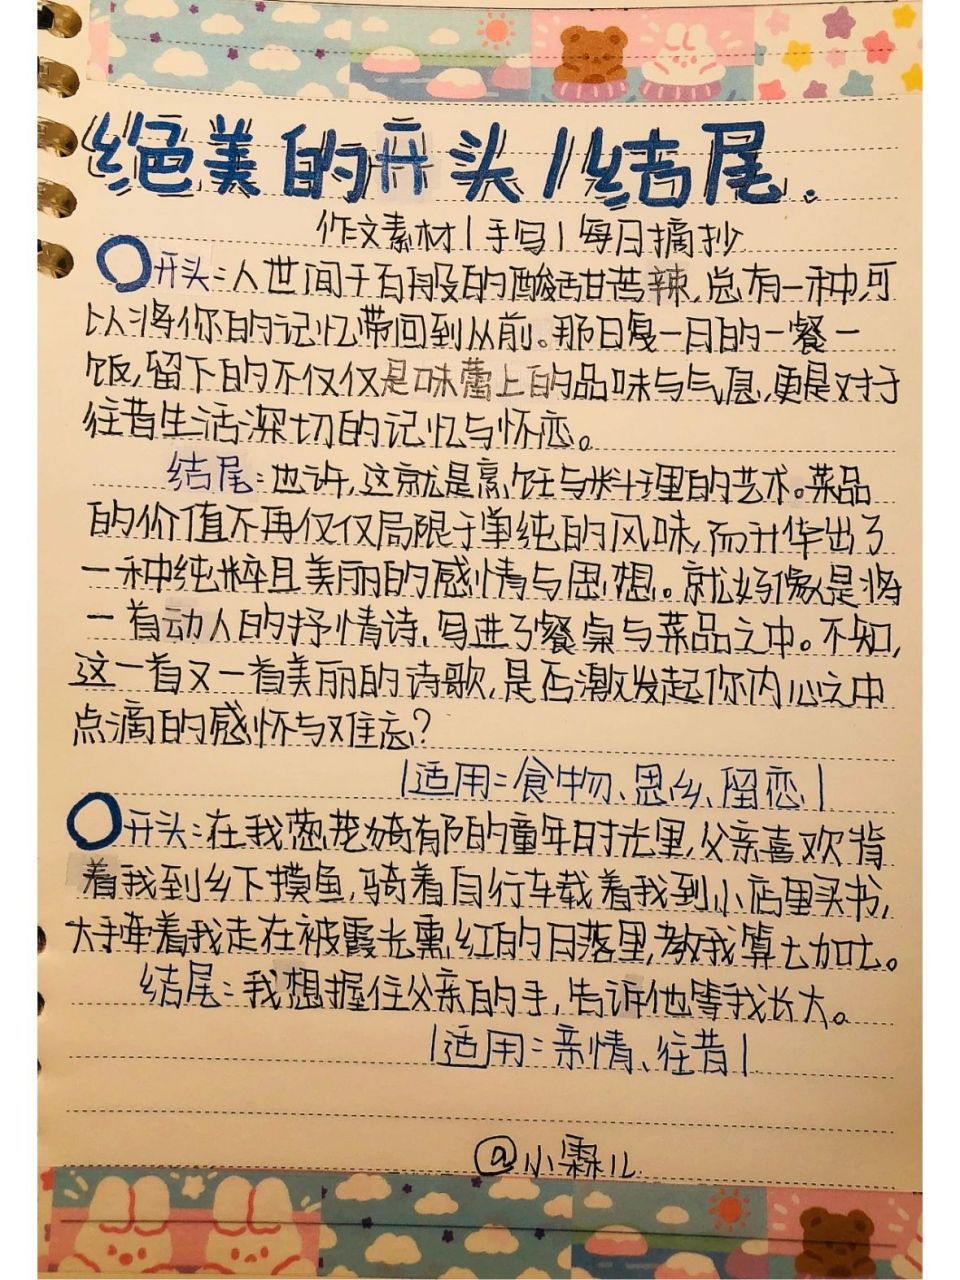 绝美的开头/结尾.
作文素材|手写|每日摘抄
开头:人世间千百般的酸甜苦辣,总有一种,可
以将你的记忆带回到从前。那日复一日的一餐一
饭,留下的不仅仅是味蕾上的品味与气息,更是对于
往昔生活深切的记忆与怀恋。
结尾:也许,这就是烹饪与料理的艺术。菜品
的价值不再仅仅局限于单纯的风味,而升华出了
一种纯粹且美丽的感情与思想。就好像是将
一首动人的抒情诗,写进了餐桌与菜品之中。不知,
这一首又一首美丽的诗歌,是否激发起你内心之中
点滴的感怀与难忘?
|适用:食物、思乡、留恋|
开头:在我葱茏旖旎的童年时光里,父亲喜欢背
着我到乡下摸鱼,骑着自行车载着我到小店里买书,
大手牵着我走在被霞光熏红的日落里,教我算七加七。
结尾:我想握住父亲的手,告诉他等我长大。
|适用:亲情、往昔|
@小霖儿